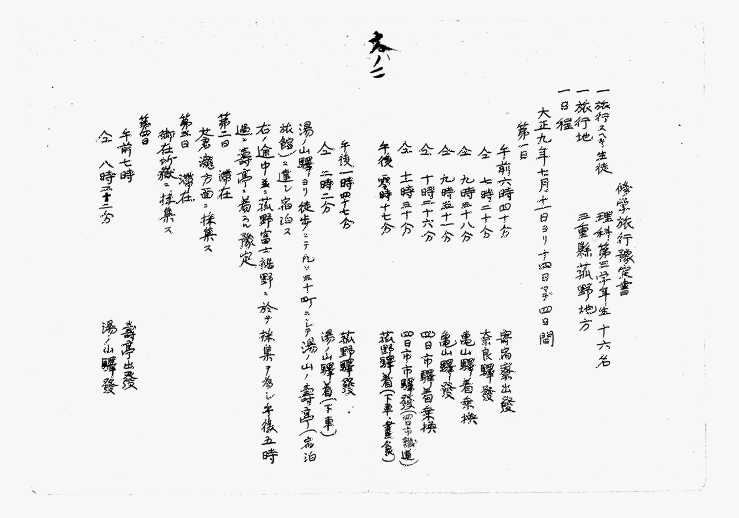 修学旅行豫定書
一 旅行スベキ生徒 理科第三学年生 十六名
一 旅行地 三重縣菰野地方
一 日程
大正九年七月十一日ヨリ十四日マデ四日間
第一日
午前六時四十分 寄宿寮出發
仝 七時二十分 奈良驛發
仝 九時三十八分 亀山驛着乗換
仝 九時五十一分 亀山驛發
仝 十時三十六分 四日市驛着乗換
仝 十一時三十分 四日市市驛發(四日市鐵道)
午後 零時十七分 菰野驛着(下車・晝食)
午後一時四十七分 菰野驛發
仝 二時二分 湯ノ山驛着(下車)
湯ノ山驛ヨリ徒歩ニテ凡ソ三十町ニシテ湯ノ山ノ壽亭(宿泊
旅館)ニ達シ宿泊ス
右ノ途中並ニ菰野富士裾野ニ於テ採集ヲ為シ午後五時
過ニ壽亭ニ着スル豫定
第二日 滞在
蒼瀧方面ニ採集ス
第三日 滞在
御在所嶽ニ採集ス
第四日
午前七時 壽亭出發
仝 八時二十二分 湯ノ山驛發